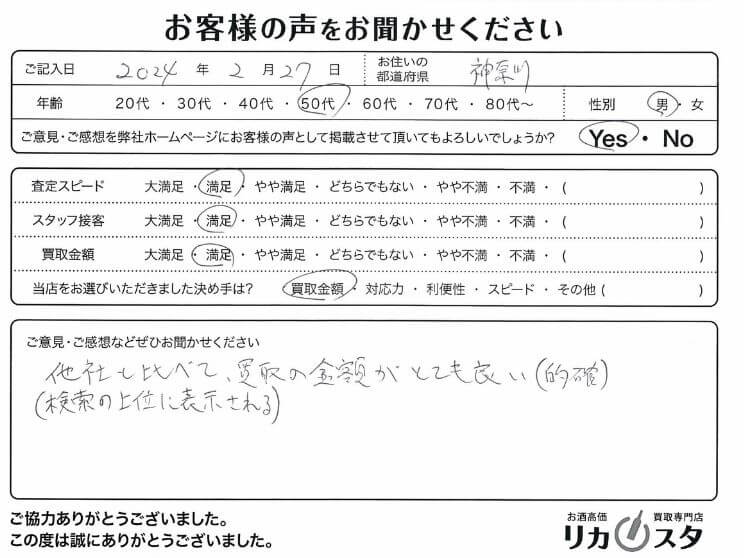 お客様の声をお聞かせください
ご記入日 2024 年 2 月 27 日 お住いの都道府県 神奈川
年齢 20代 ・ 30代 ・ 40代 ・ 50代 ・ 60代 ・ 70代 ・ 80代〜 性別 男 ・ 女
ご意見・ご感想を弊社ホームページにお客様の声として掲載させて頂いてもよろしいでしょうか? Yes ・ No
査定スピード 大満足 ・ 満足 ・ やや満足 ・ どちらでもない ・ やや不満 ・ 不満 ・ ( )
スタッフ接客 大満足 ・ 満足 ・ やや満足 ・ どちらでもない ・ やや不満 ・ 不満 ・ ( )
買取金額 大満足 ・ 満足 ・ やや満足 ・ どちらでもない ・ やや不満 ・ 不満 ・ ( )
当店をお選びいただきました決め手は? 買取金額 ・ 対応力 ・ 利便性 ・ スピード ・ その他 ( )
ご意見・ご感想などぜひお聞かせください
他社と比べて、買取の金額がとても良い(的確)
(検索の上位に表示される)
ご協力ありがとうございました。
この度は誠にありがとうございました。
お酒高価 買取専門店
リカスタ